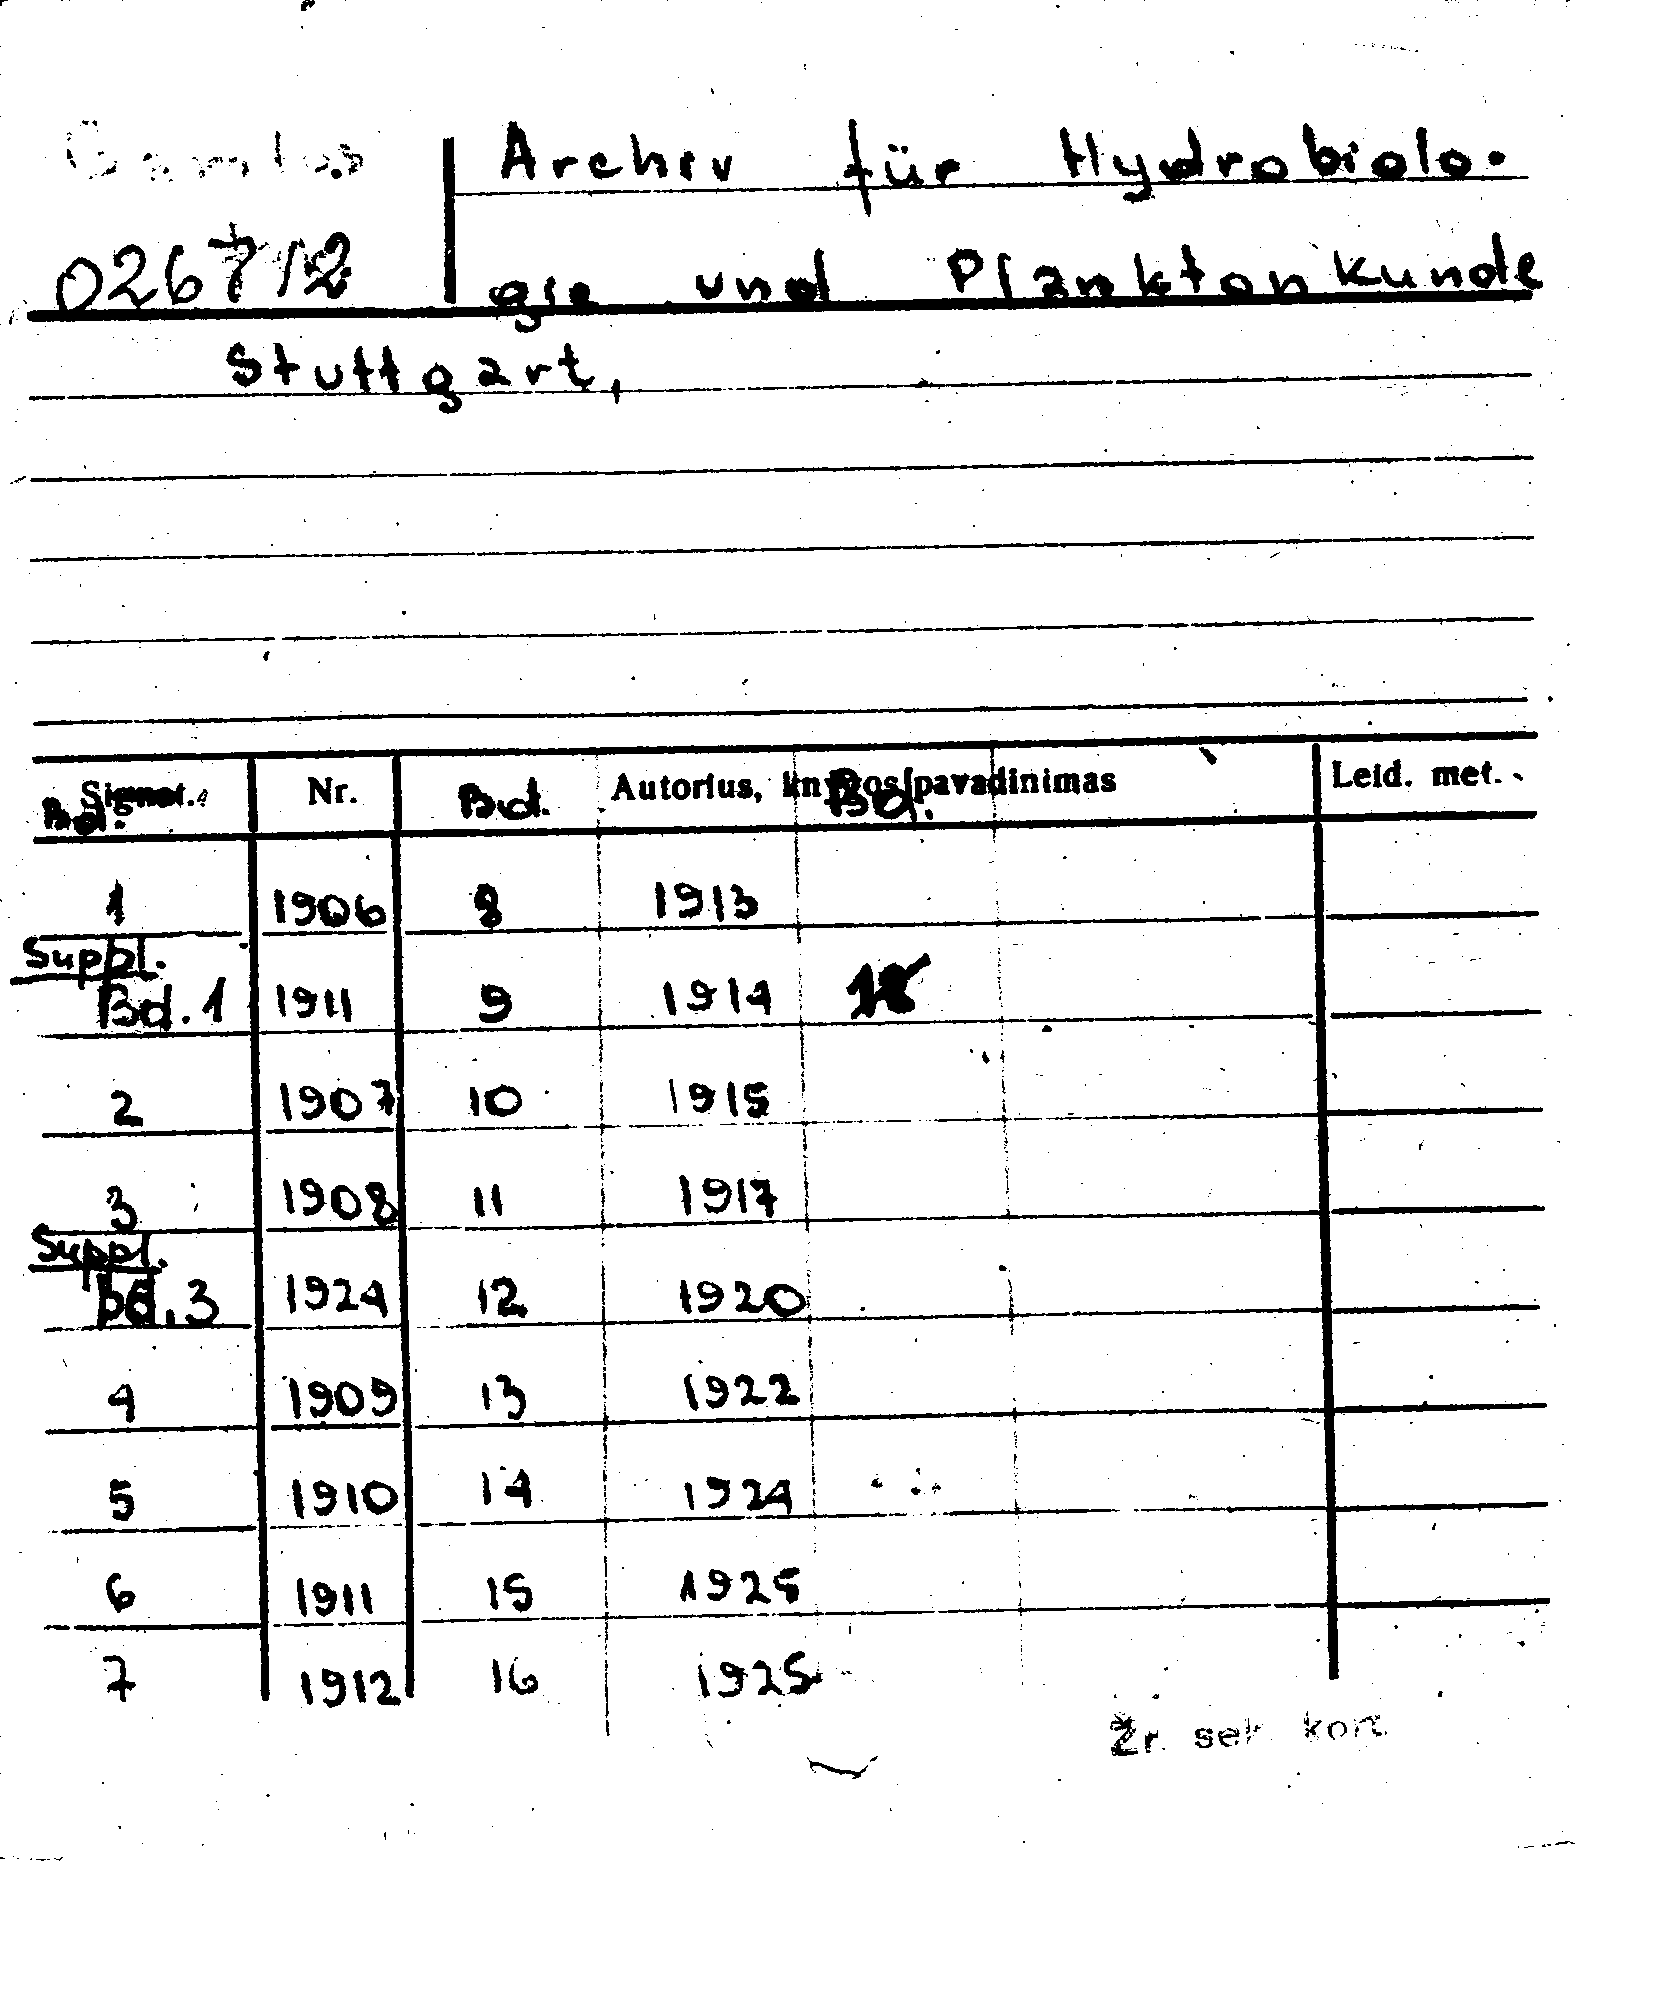 Archiv für Hydrobiolo.
026712
gie und Planktonkunde
Stuttgart,
Signat. Nr. Bd. Autorius, knygos pavadinimas Leid. met.
Bd. Bd.
1 1906 8 1913
Suppl.
Bd. 1 1911 9 1914
2 1907 10 1915
3 1908 11 1917
Suppl.
Bd. 3 1924 12 1920
4 1909 13 1922
5 1910 14 1924
6 1911 15 1925
7 1912 16 1925
Žr. sek. kort.